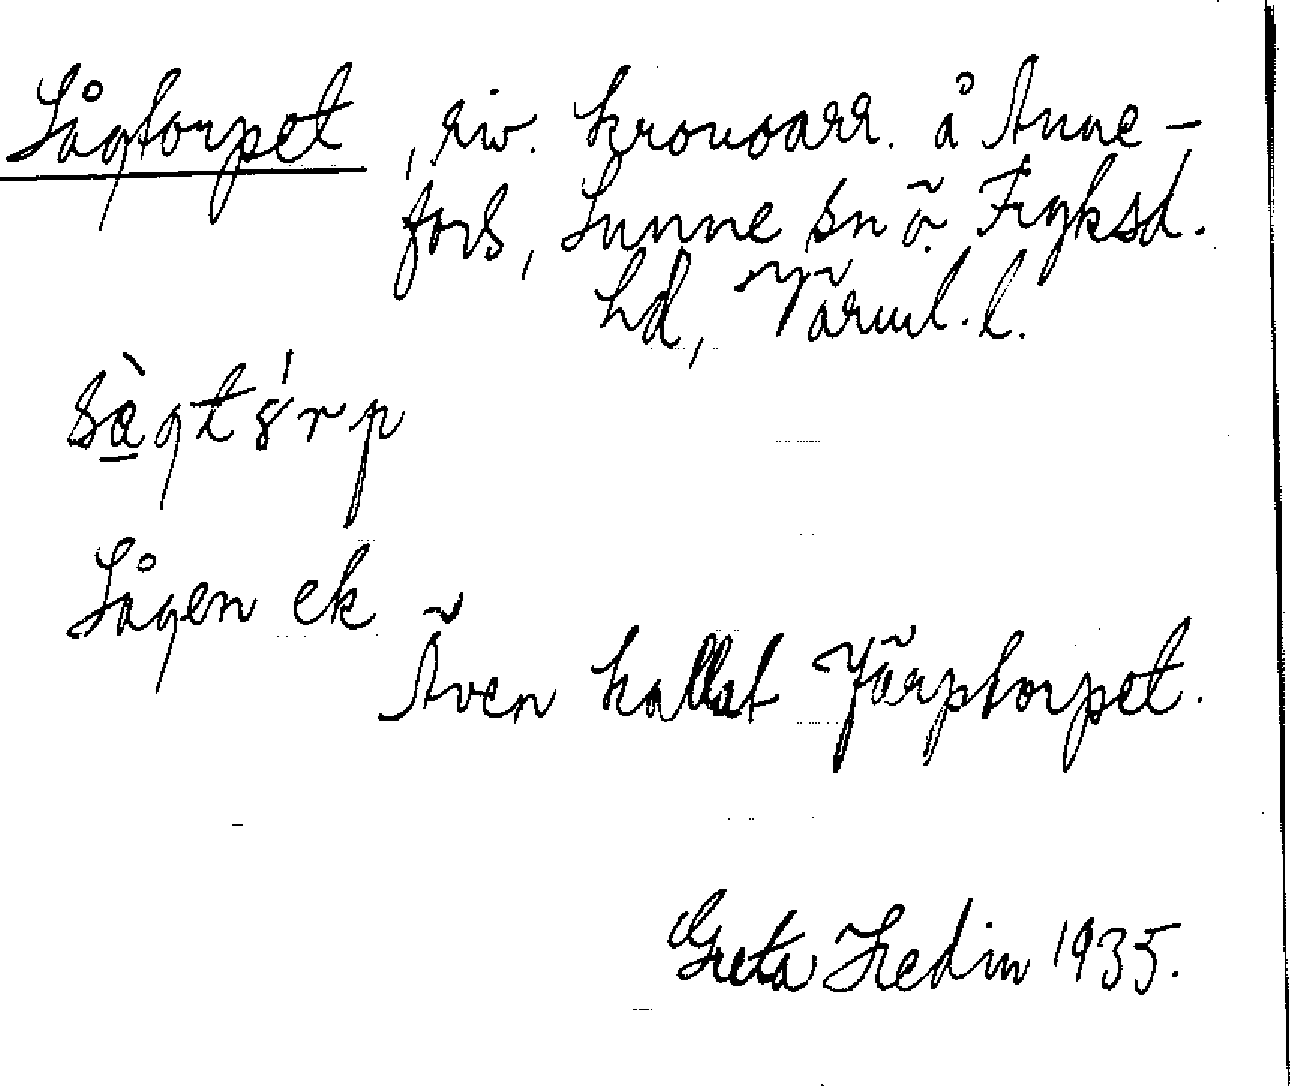 Sågtorpet, riv. kronoarr. å Anne-
fors, Sunne sn ö. Fryksd.
hd, Värml. l.
sàgtórp
Sågen ek
Även kallat Järptorpet.
Greta Hedin 1935.